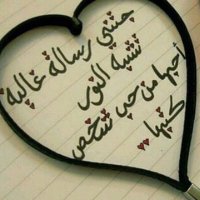 جتني رساله غاليه
تشبه النور
أحبها من حب شخص
كتبها